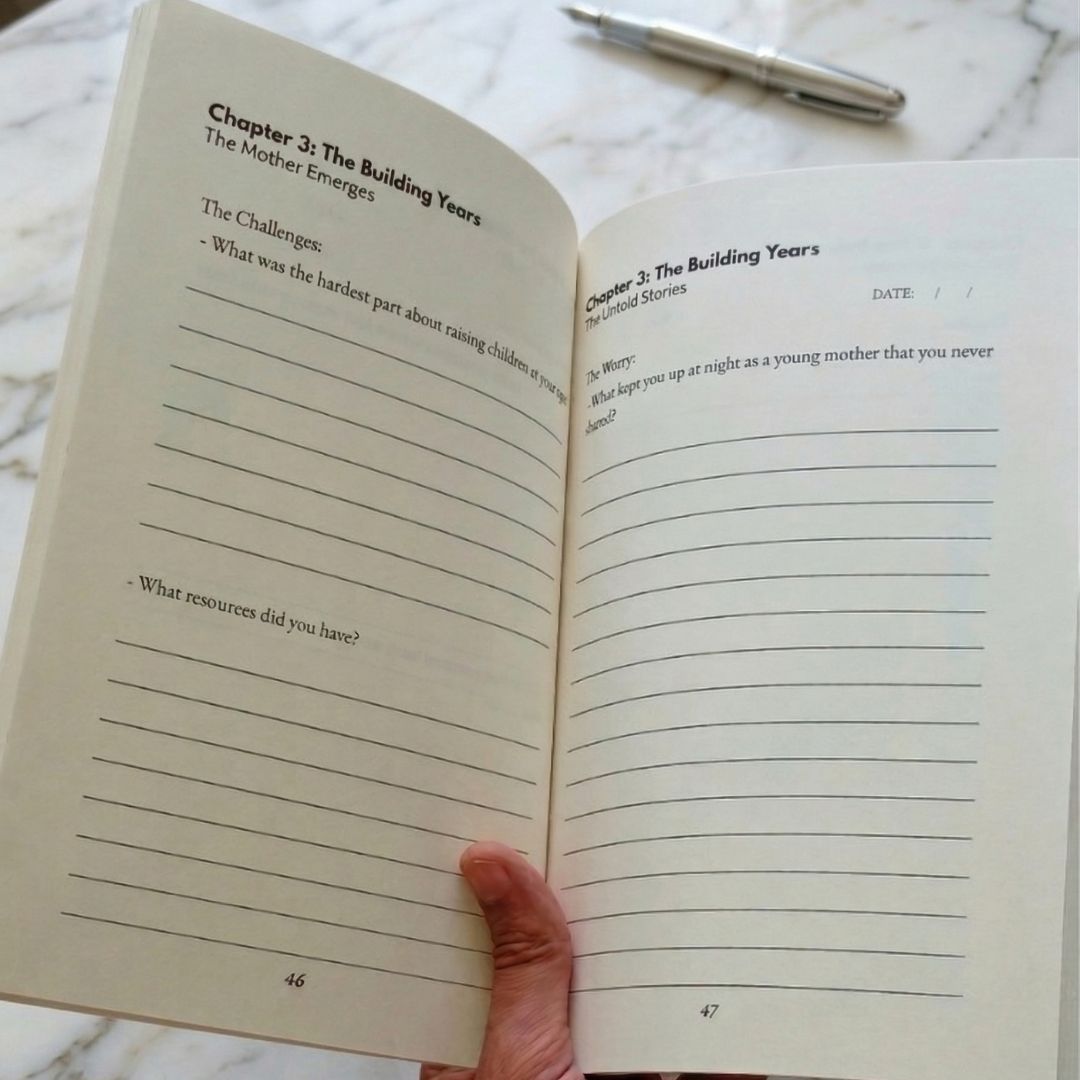 Chapter 3: The Building Years
The Mother Emerges
The Challenges:
- What was the hardest part about raising children at your age
- What resources did you have?
46
Chapter 3: The Building Years
The Untold Stories
DATE: / /
The Worry:
-What kept you up at night as a young mother that you never
shared?
47